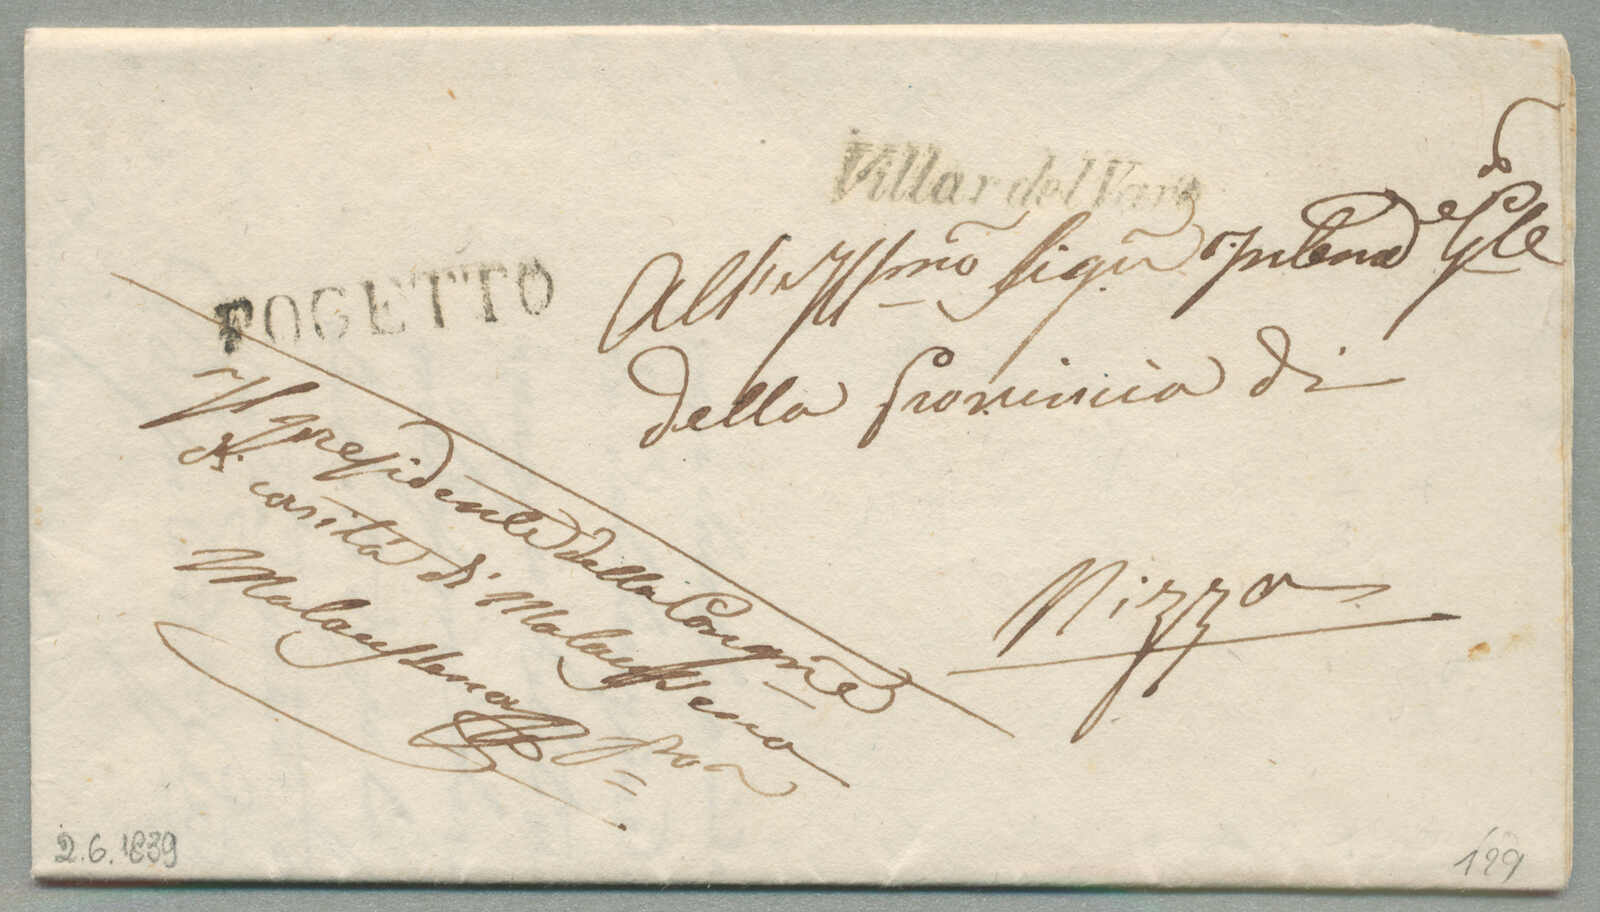 Villar del Varo
POGETTO
All' Ill.mo Sig.r Intend.e G.le
della Provincia di
Nizza
Il Presidente della Congne
di carità di Malaussena
Malaussena
2.6.1839
199